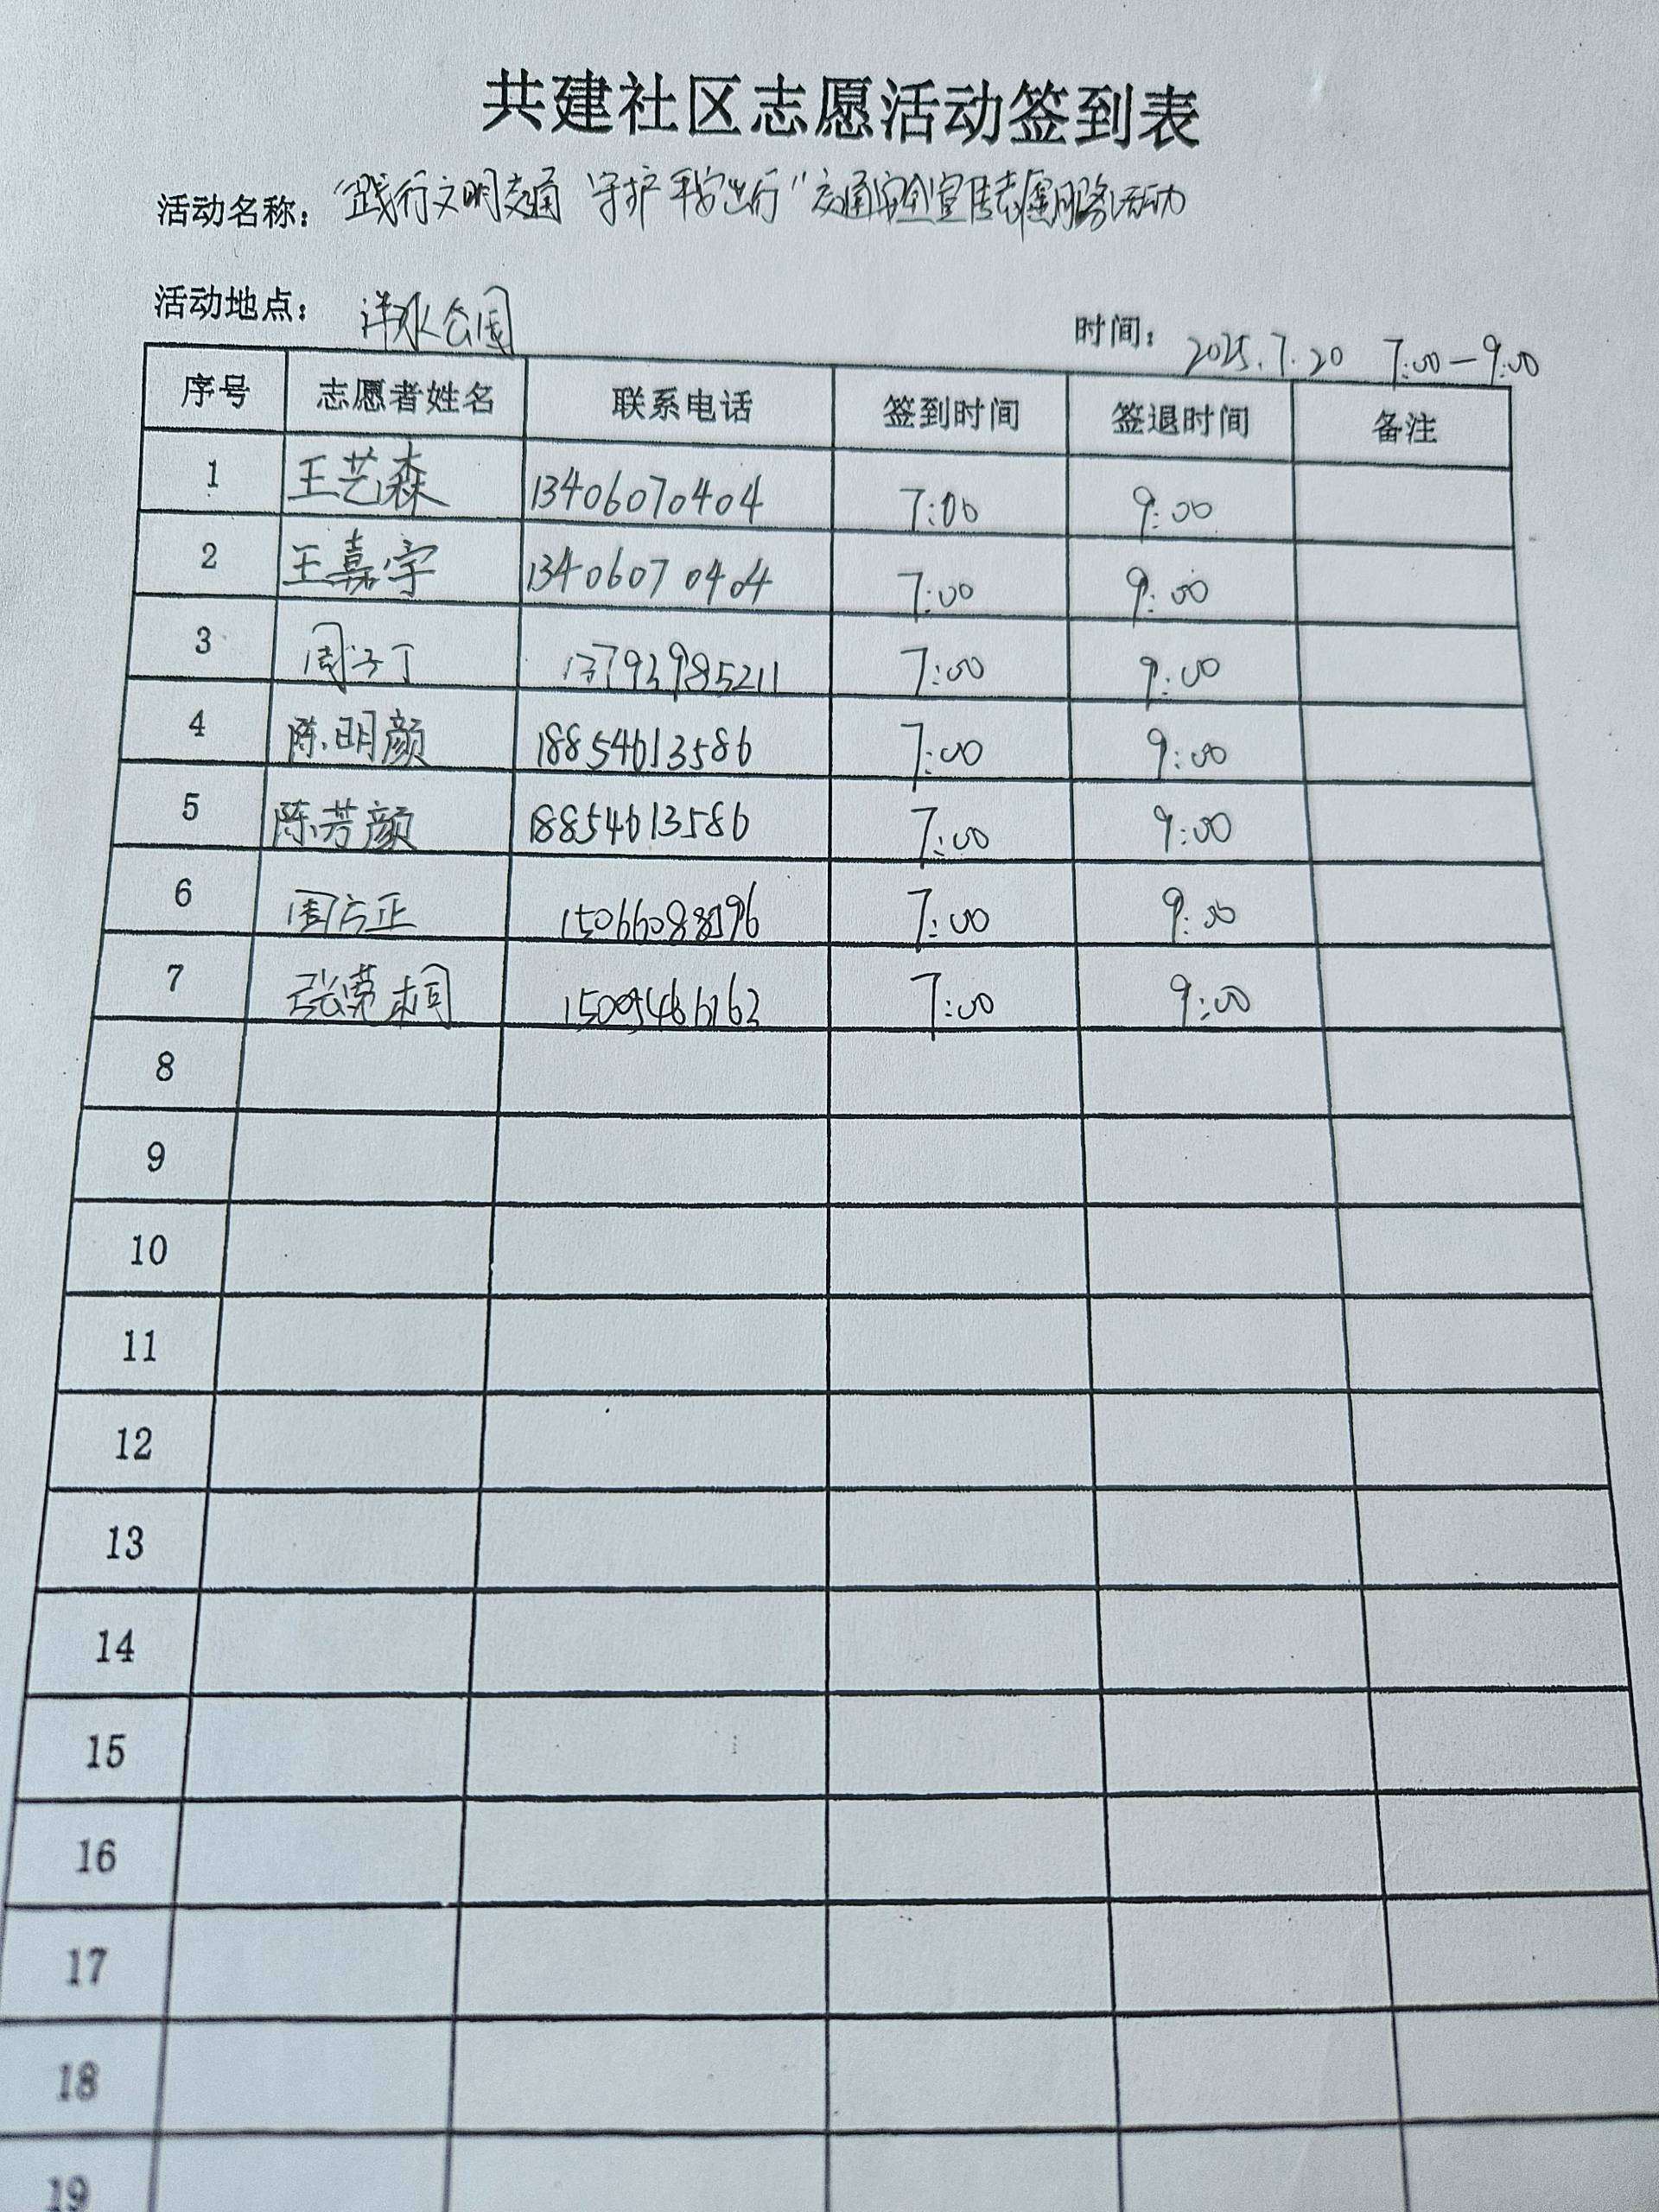 共建社区志愿活动签到表
活动名称: “践行文明交通 守护平安出行”交通安全宣传志愿服务活动
活动地点: 洋水公园 时间: 2025.7.20 7:00—9:00
序号 志愿者姓名 联系电话 签到时间 签退时间 备注
1 王艺森 13406070404 7:00 9:00
2 王嘉宇 13406070404 7:00 9:00
3 周子丁 13793985211 7:00 9:00
4 陈明颜 18854613586 7:00 9:00
5 陈芳颜 18854613586 7:00 9:00
6 周方正 7:00 9:00
7 7:00 9:00
8
9
10
11
12
13
14
15
16
17
18
19